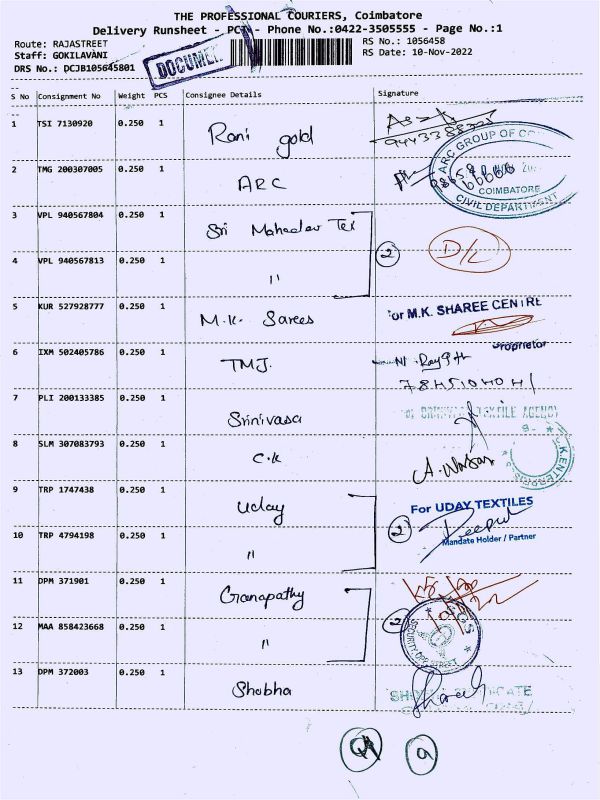 THE PROFESSIONAL COURIERS, Coimbatore
Delivery Runsheet - PCT - Phone No.:0422-3505555 - Page No.:1
Route: RAJASTREET RS No.: 1056458
Staff: GOKILAVANI RS Date: 10-Nov-2022
DRS No.: DCJB105645801 DOCUME
S No Consignment No Weight PCS Consignee Details Signature
1 TSI 7130920 0.250 1 Rani gold
2 TMG 200307005 0.250 1 ARC
ARC GROUP OF CO
COIMBATORE
CIVIL DEPARTMENT
3 VPL 940567804 0.250 1 Sri Mahadev Tex
4 VPL 940567813 0.250 1 " 2 D/L
5 KUR 527928777 0.250 1 M.K. Sarees
For M.K. SHAREE CENTRE
Proprietor
6 IXM 502405786 0.250 1 TMJ.
7 PLI 200133385 0.250 1 Srinivasa
TEXTILE AGENCY
8 SLM 307083793 0.250 1 C.K
C.K.ENTERPRIS
9 TRP 1747438 0.250 1 Uday
For UDAY TEXTILES
10 TRP 4794198 0.250 1 " 2 Deepul
Mandate Holder / Partner
11 DPM 371901 0.250 1 Ganapathy
12 MAA 858423668 0.250 1 " 2
SECURITY OPP STREET
13 DPM 372003 0.250 1 Shobha